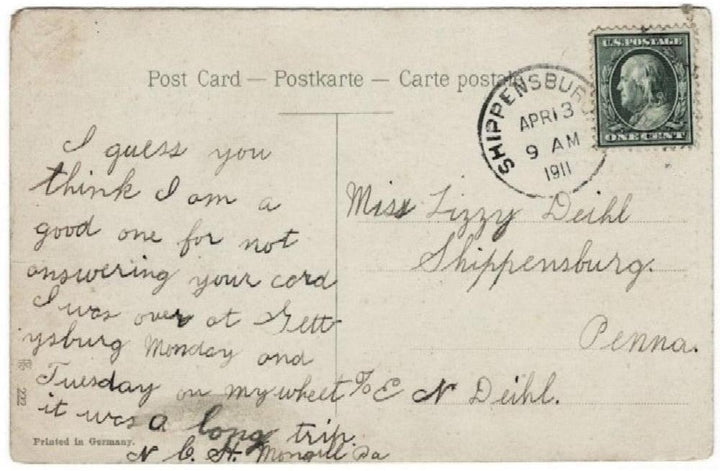 Post Card — Postkarte — Carte postale
U.S. POSTAGE
ONE CENT
SHIPPENSBURG
APR 13
9 AM
1911
I guess you
think I am a
good one for not
answering your card
I was over at Gett
ysburg Monday and
Tuesday on my wheel
it was a long trip.
N C H Pa
Miss Lizzy Deihl
Shippensburg.
Penna.
% E N Deihl.
222
Printed in Germany.